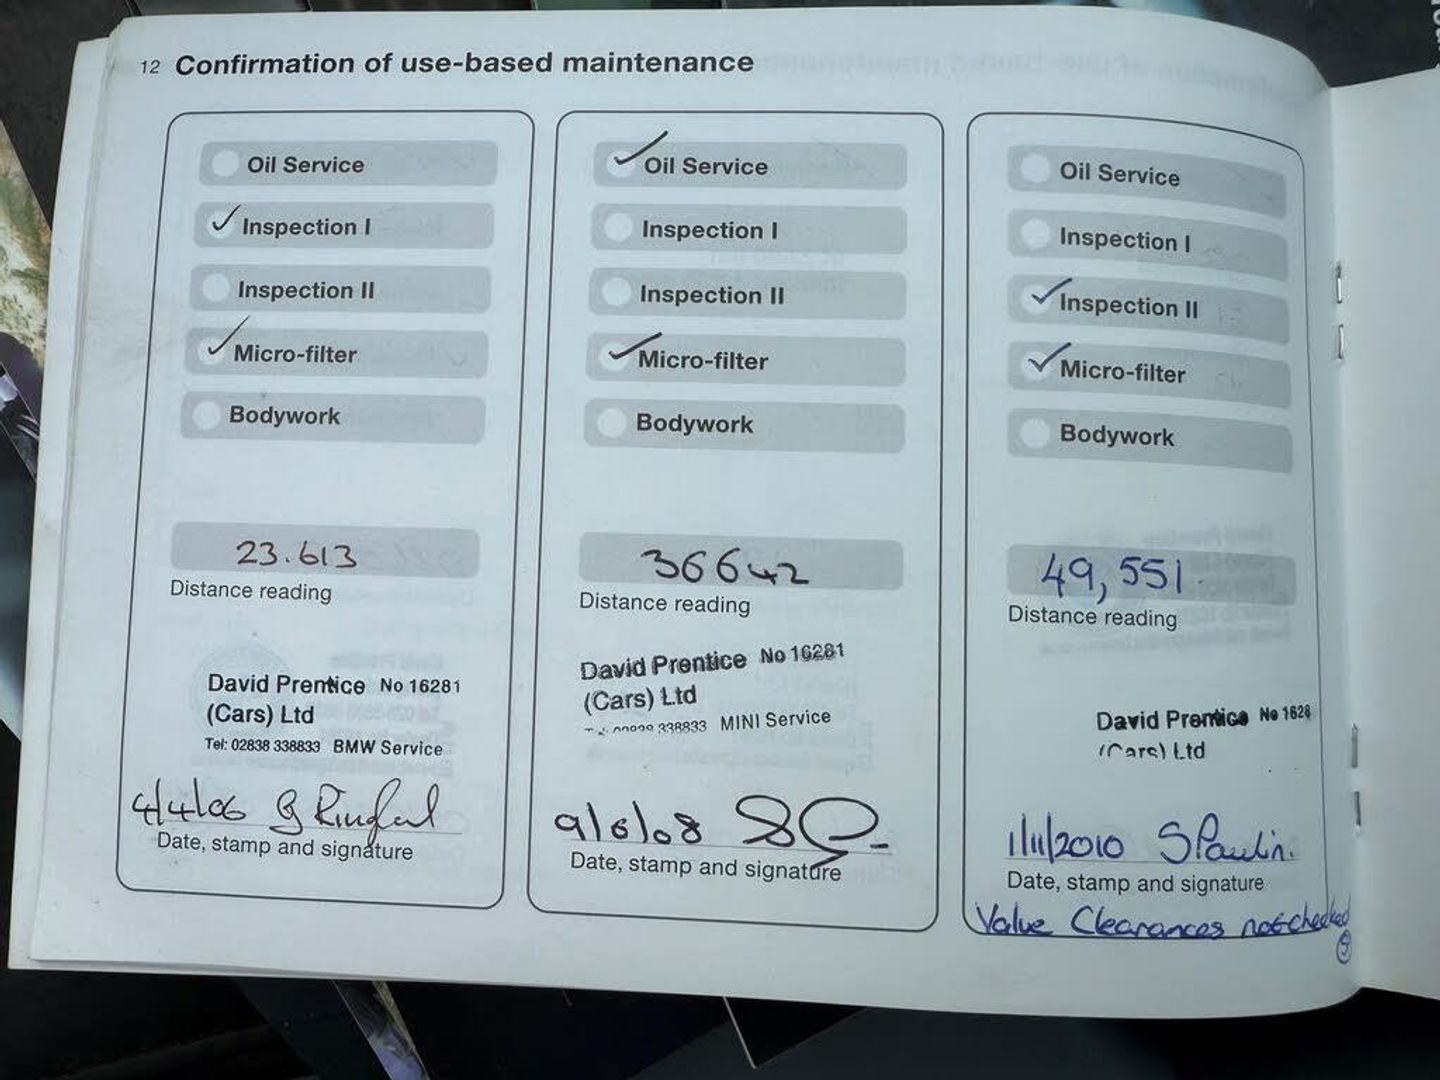 12 Confirmation of use-based maintenance
Oil Service
Inspection I
Inspection II
Micro-filter
Bodywork
23.613
Distance reading
David Prentice No 16281
(Cars) Ltd
Tel: 02838 338833 BMW Service
4/4/06
Date, stamp and signature
Oil Service
Inspection I
Inspection II
Micro-filter
Bodywork
36642
Distance reading
David Prentice No 16281
(Cars) Ltd
338833 MINI Service
9/6/08
Date, stamp and signature
Oil Service
Inspection I
Inspection II
Micro-filter
Bodywork
49,551
Distance reading
David Prentice No 1628
(Cars) Ltd
1/11/2010 S Paulin.
Date, stamp and signature
Valve Clearances not checked